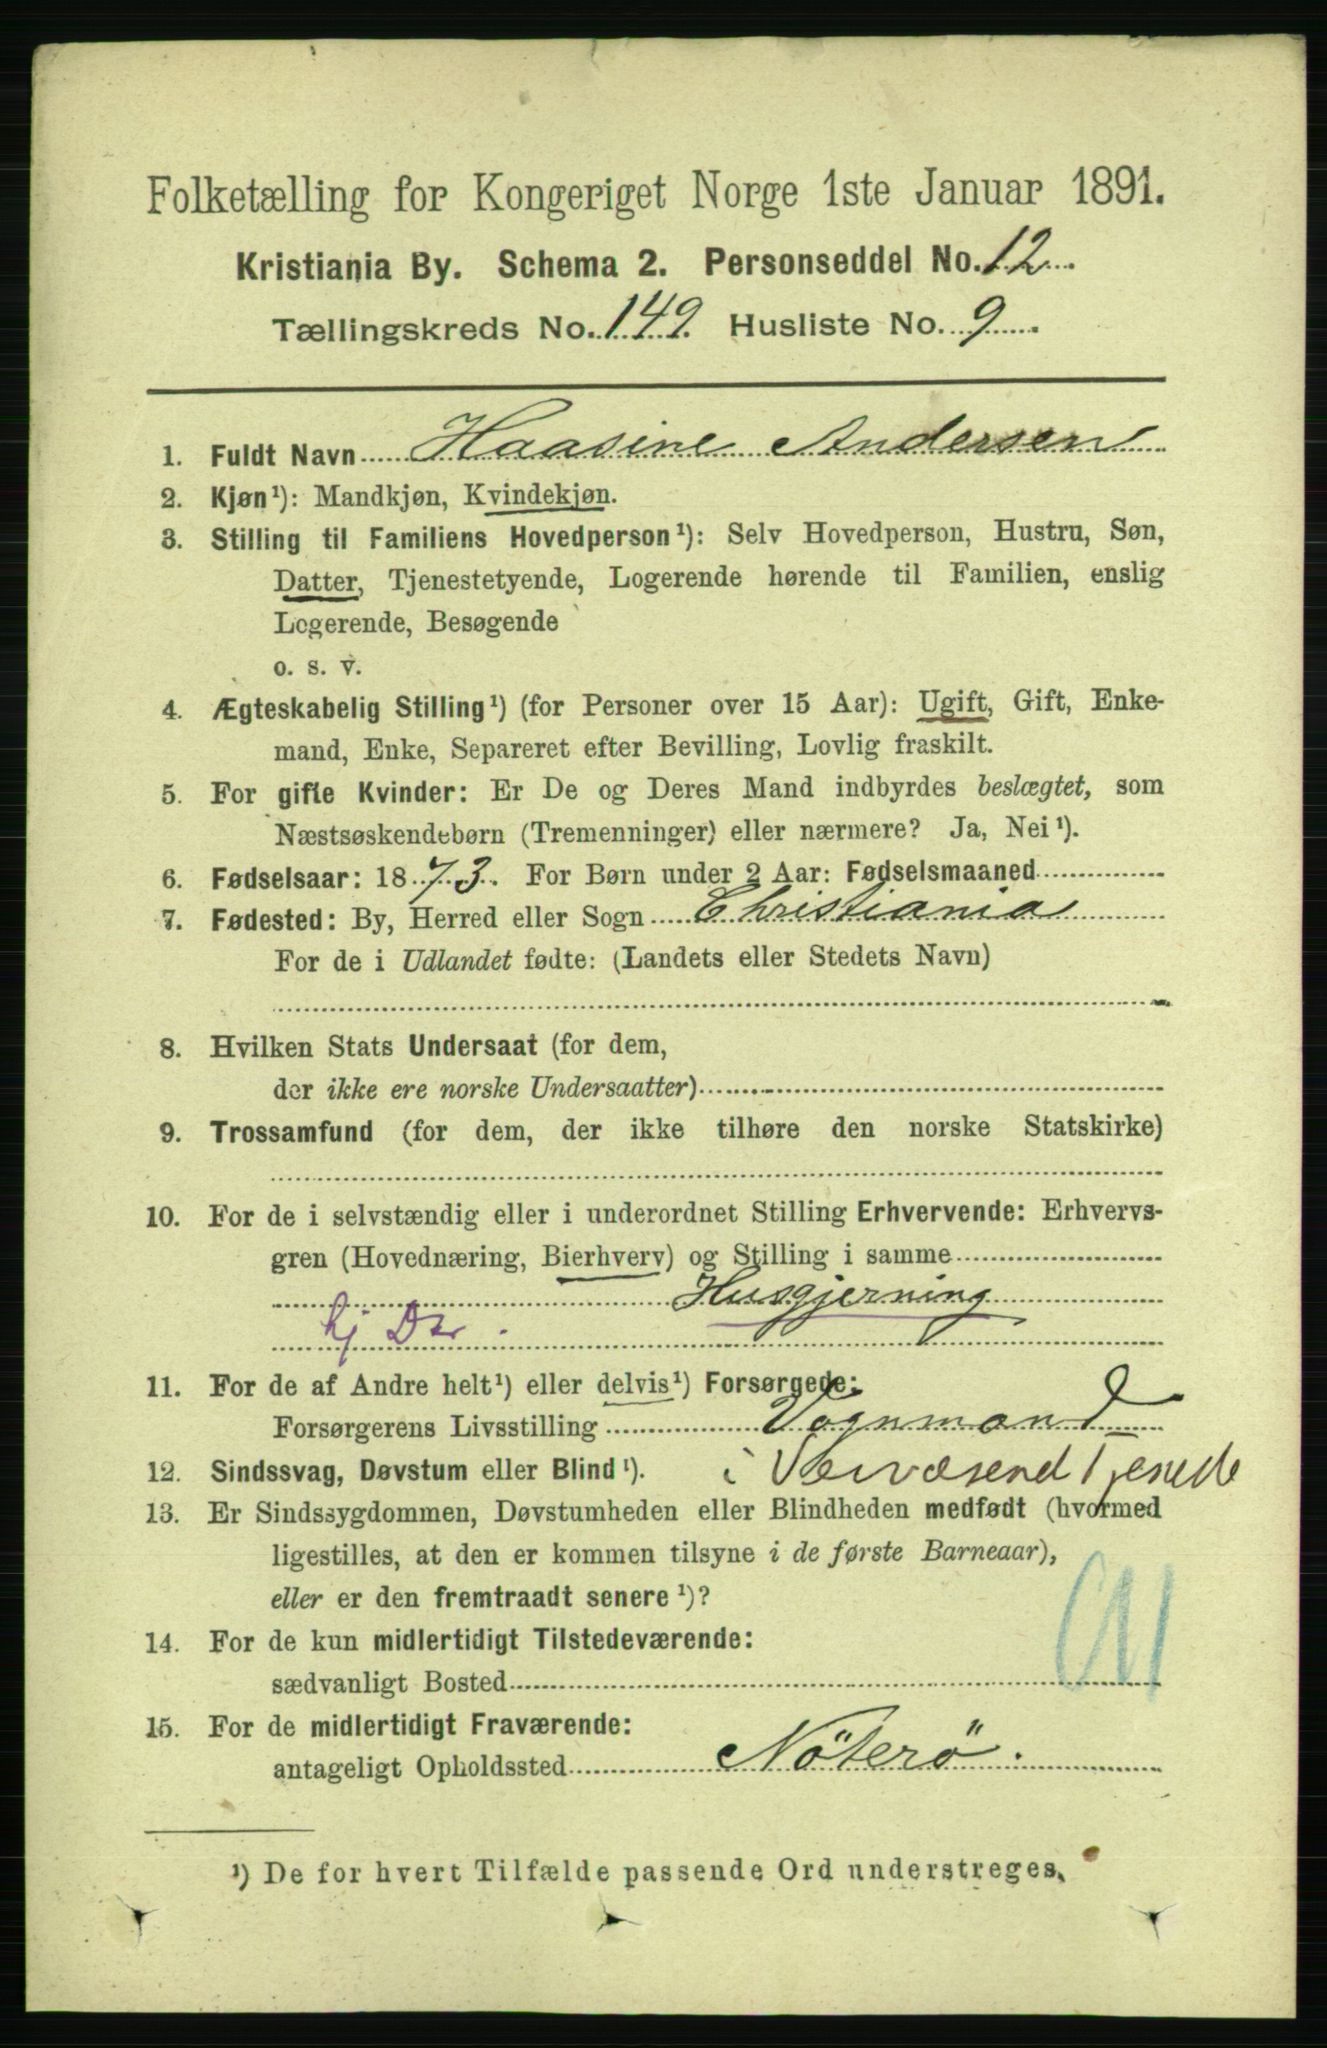 Folketælling for Kongeriget Norge 1ste Januar 1891.
Kristiania By. Schema 2. Personseddel No. 12
Tællingskreds No. 149. Husliste No. 9
1. Fuldt Navn Haasine Andersen
2. Kjøn¹): Mandkjøn, Kvindekjøn.
3. Stilling til Familiens Hovedperson¹): Selv Hovedperson, Hustru, Søn,
Datter, Tjenestetyende, Logerende hørende til Familien, enslig
Logerende, Besøgende
o. s. v.
4. Ægteskabelig Stilling¹) (for Personer over 15 Aar): Ugift, Gift, Enke-
mand, Enke, Separeret efter Bevilling, Lovlig fraskilt.
5. For gifte Kvinder: Er De og Deres Mand indbyrdes beslægtet, som
Næstsøskendebørn (Tremenninger) eller nærmere? Ja, Nei¹).
6. Fødselsaar: 1873. For Børn under 2 Aar: Fødselsmaaned
7. Fødested: By, Herred eller Sogn Christiania
For de i Udlandet fødte: (Landets eller Stedets Navn)
8. Hvilken Stats Undersaat (for dem,
der ikke ere norske Undersaatter)
9. Trossamfund (for dem, der ikke tilhøre den norske Statskirke)
10. For de i selvstændig eller i underordnet Stilling Erhvervende: Erhvervs-
gren (Hovednæring, Bierhverv) og Stilling i samme
Husgjerning
hj Dtr.
11. For de af Andre helt¹) eller delvis¹) Forsørgede:
Forsørgerens Livsstilling Vognmand
12. Sindssvag, Døvstum eller Blind¹). i Veivæsend Tjeneste
13. Er Sindssygdommen, Døvstumheden eller Blindheden medfødt (hvormed
ligestilles, at den er kommen tilsyne i de første Barneaar),
eller er den fremtraadt senere¹)?
14. For de kun midlertidigt Tilstedeværende:
sædvanligt Bosted
15. For de midlertidigt Fraværende:
antageligt Opholdssted Nöterö.
¹) De for hvert Tilfælde passende Ord understreges.